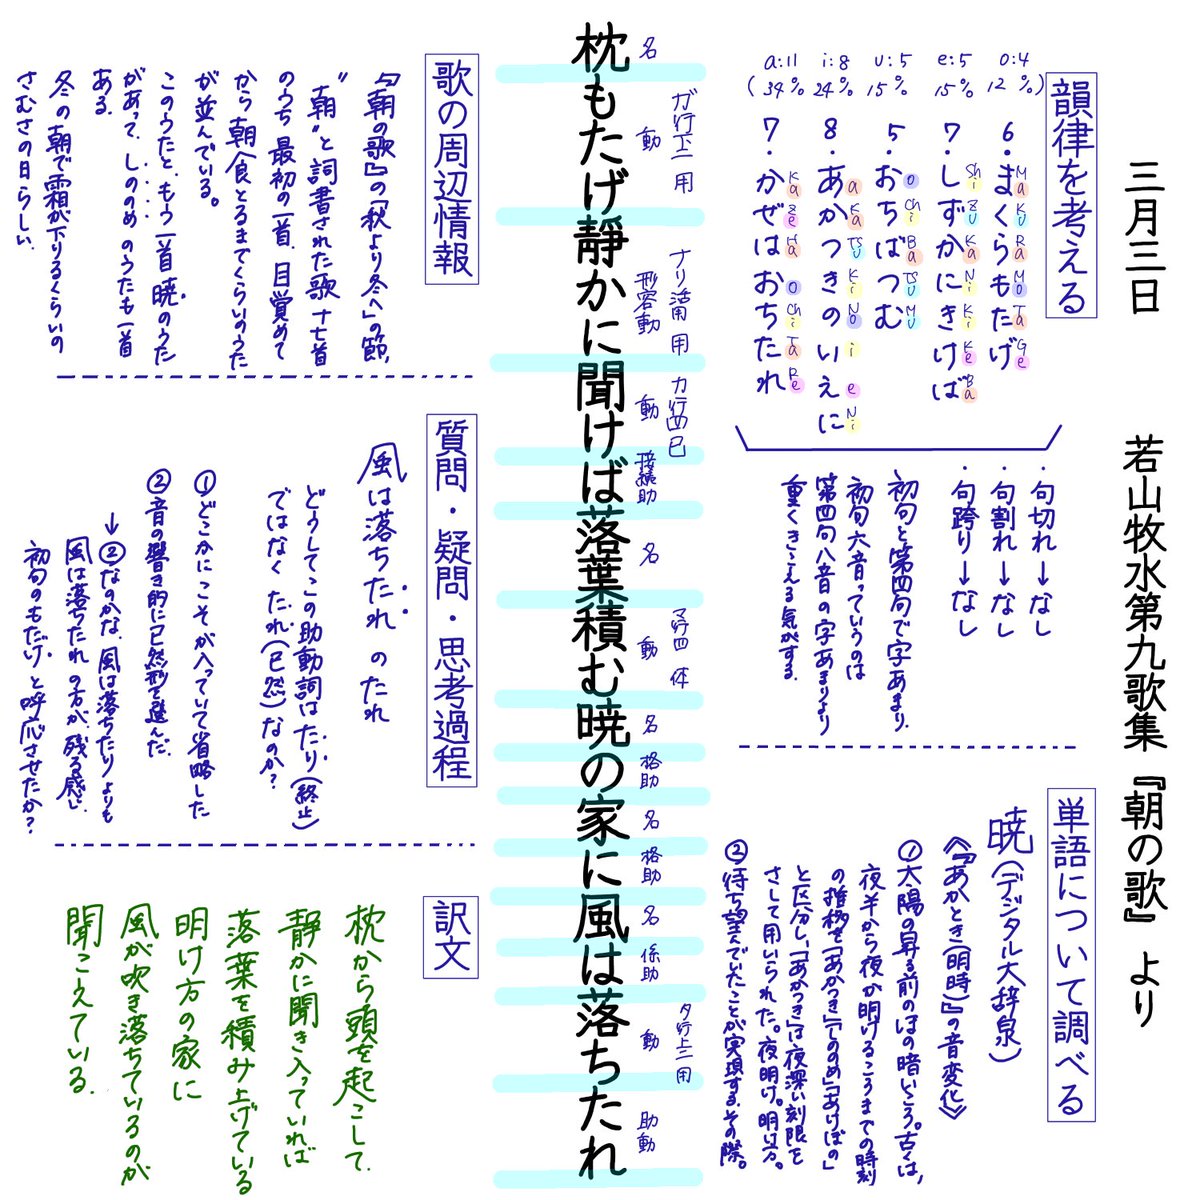 三月三日 若山牧水第九歌集『朝の歌』より
韻律を考える
a:11 i:8 u:5 e:5 o:4
(34% 24% 15% 15% 12%)
6・まくらもたげ
Ma Ku Ra Mo Ta Ge
7・しずかにきけば
Shi Zu Ka Ni Ki Ke Ba
5・おちばつむ
o Chi Ba Tsu Mu
8・あかつきのいえに
a Ka Tsu Ki No i e Ni
7・かぜはおちたれ
Ka Ze Ha o Chi Ta Re
・句切れ→なし
・句割れ→なし
・句跨り→なし
初句と第四句で字あまり.
初句六音っていうのは
第四句八音の字あまりより
重くきこえる気がする.
単語について調べる
暁(デジタル大辞泉)
《『あかとき(明時)』の音変化》
①太陽の昇る前のほの暗いころ。古くは,
夜半から夜が明けるころまでの時刻
の推移を「あかつき」「しののめ」「あけぼの」
と区分し,「あかつき」は夜深い刻限を
さして用いられた。夜明け。明け方。
②待ち望んでいたことが実現する,その際。
枕もたげ靜かに聞けば落葉積む暁の家に風は落ちたれ
名
動 ガ行下二 用
形容動 ナリ活用 用
動 カ行四 已
接続助
名
動 マ行四 体
名
格助
名
格助
名
係助
動 タ行上二 用
助動
歌の周辺情報
『朝の歌』の「秋より冬へ」の節,
"朝"と詞書された歌十七首
のうち最初の一首.目覚めて
から朝食とるまでくらいのうた
が並んでいる。
このうたと,もう一首暁のうた
があって,しののめのうたも一首
ある.
冬の朝で霜が下りるくらいの
さむさの日らしい.
質問・疑問・思考過程
風は落ちたれのたれ
どうしてこの助動詞はたり(終止)
ではなくたれ(已然)なのか?
①どこかにこそが入っていて省略した
②音の響き的に已然形を選んだ.
→②なのかな.風は落ちたりよりも
風は落ちたれの方が,残る感じ.
初句のもたげと呼応させたか?
訳文
枕から頭を起こして
静かに聞き入っていれば
落葉を積み上げている
明け方の家に
風が吹き落ちているのが
聞こえている.